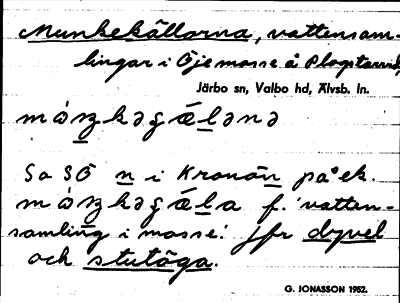 Munkekällorna, vattensam-
lingar i Öjemosse å Plogstannd,
Järbo sn, Valbo hd, Älvsb. ln.
Sa SÖ n i Kronän på ek.
f. 'vatten-
samling i mosse'. Jfr dyvel
och stutöga.
G. JONASSON 1952.